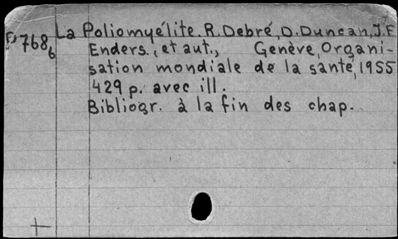 La Poliomyélite. R. Debré, D. Duncan, J. F.
768₆ Enders., et aut., Genève, Organi-
sation mondiale de la santé, 1955
429 p. avec ill.
Bibliogr. à la fin des chap.